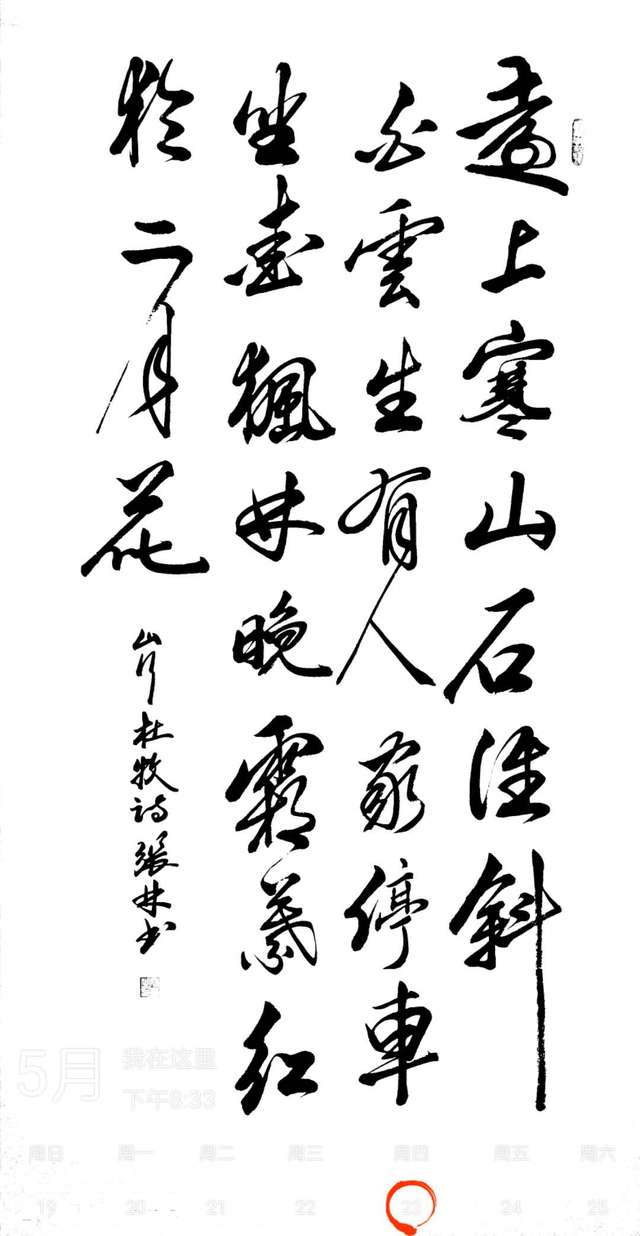 遠上寒山石徑斜
白雲生有人家停車
坐愛楓林晚霜葉紅
於二月花
山行杜牧诗張林书
5月
我在这里
下午8:33
周日 周一 周二 周三 周四 周五 周六
19 20 21 22 23 24 25